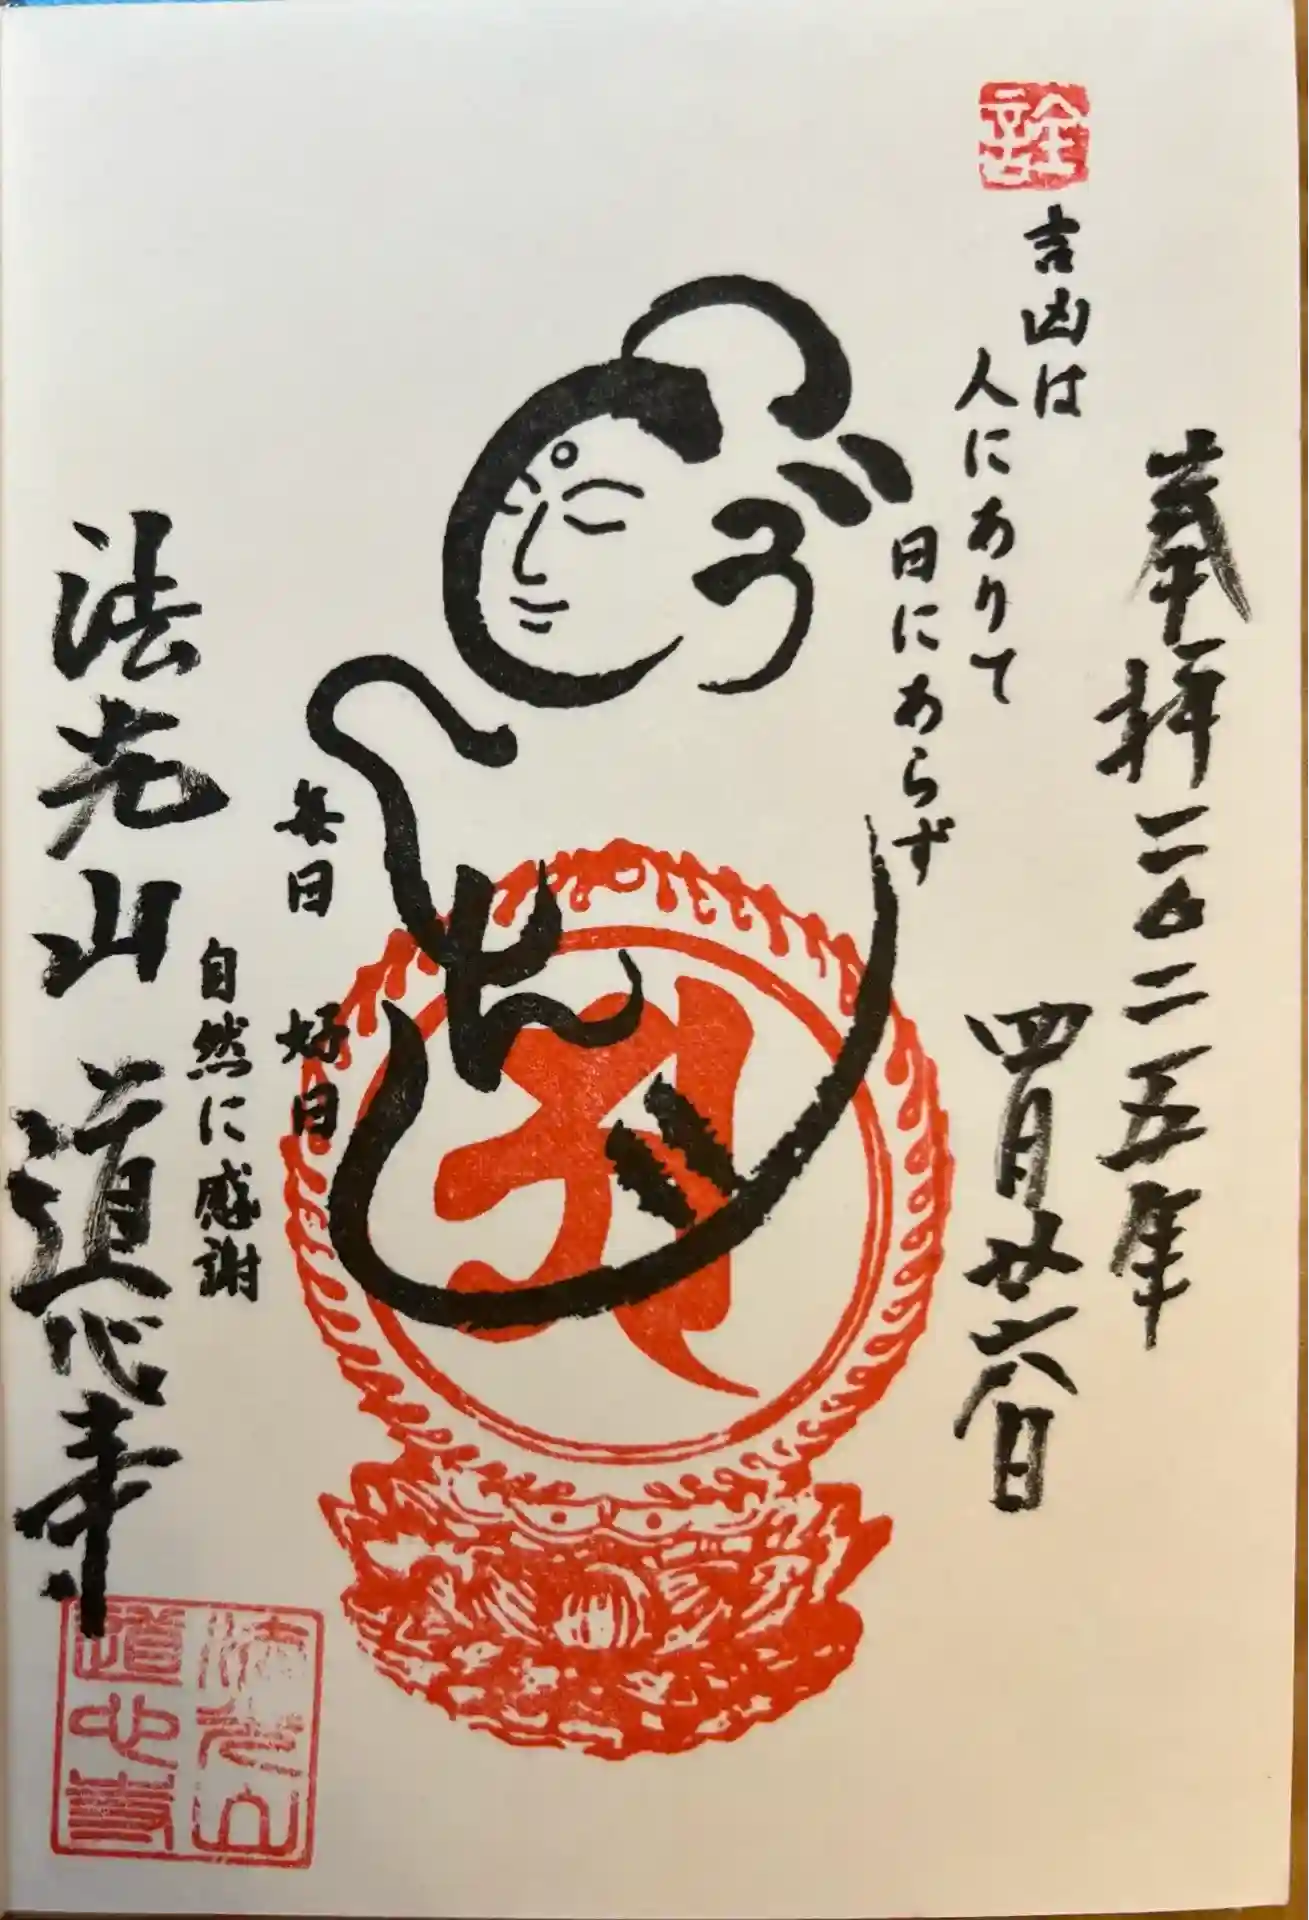 詮
奉拝 二〇二五年
四月廿六日
吉凶は
人にありて
日にあらず
毎日 好日
自然に感謝
法光山 道心寺
法光山
道心寺